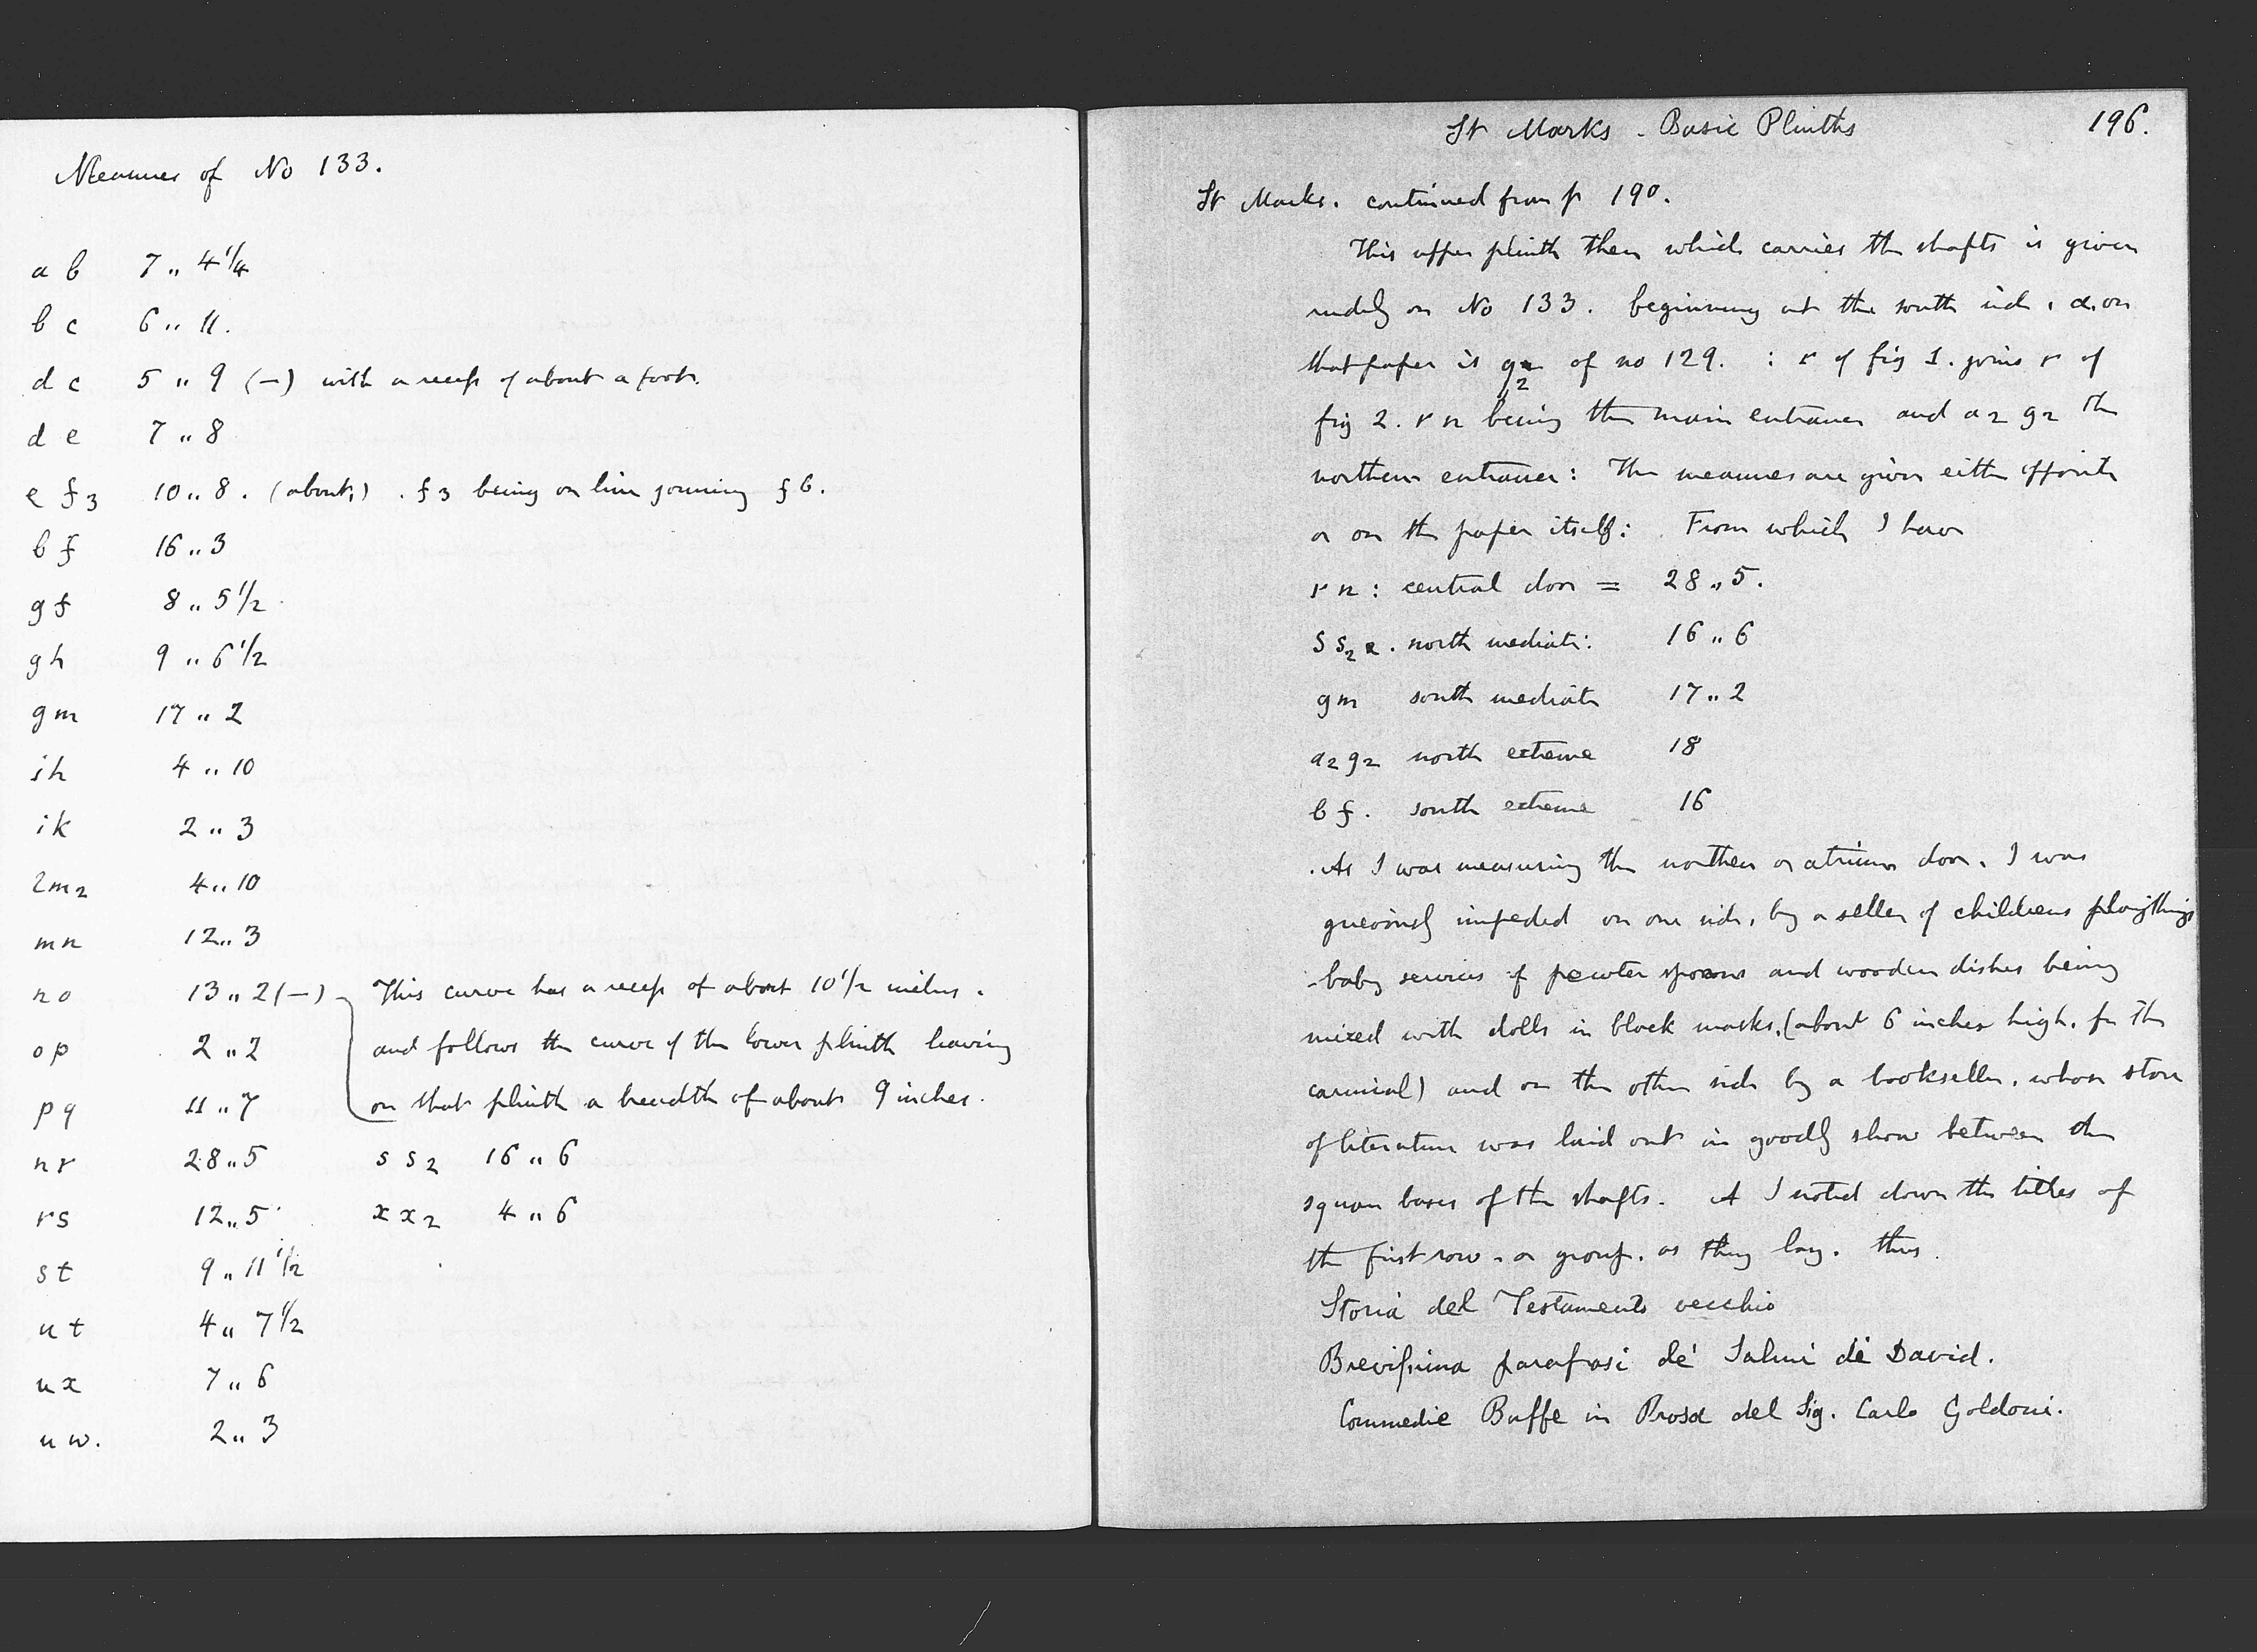 Measures of No 133.
a b 7 „ 4 1/4
b c 6 „ 11.
d c 5 „ 9 (–) with a recess of about a foot.
d e 7 „ 8
e f3 10 „ 8. (about.) . f3 being on line joining f b.
b f 16 „ 3
g f 8 „ 5 1/2
g h 9 „ 6 1/2
g m 17 „ 2
i h 4 „ 10
i k 2 „ 3
l m2 4 „ 10
m n 12 „ 3
n o 13 „ 2 (–) This curve has a recess of about 10 1/2 inches.
o p 2 „ 2 and follows the curve of the lower plinth leaving
p q 11 „ 7 on that plinth a breadth of about 9 inches.
n r 28 „ 5 s s2 16 „ 6
r s 12 „ 5 x x2 4 „ 6
s t 9 „ 11 1/2
u t 4 „ 7 1/2
u x 7 „ 6
u w. 2 „ 3
St Marks - Basic Plinths 196.
St Marks. continued from p 190.
This upper plinth then which carries the shafts is given
rudely on No 133. beginning at the south side, a. on
that paper is g2 of no 129. : r of fig 1. joins r of
fig 2. r n being the main entrance and a2 g2 the
northern entrance: The measures are given either opposite
or on the paper itself: From which I have
r n : central door = 28 „ 5.
S S2 . north mediate: 16 „ 6
g m south mediate 17 „ 2
a2 g2 north extreme 18
b f. south extreme 16
. As I was measuring the northern or atrium door. I was
grievously impeded on one side, by a seller of childrens playthings
- baby services of pewter spoons and wooden dishes being
mixed with dolls in black masks, (about 6 inches high. for the
carnival) and on the other side by a bookseller, whose store
of literature was laid out in goodly show between the
square bases of the shafts. I noted down the titles of
the first row - or group. as they lay. thus.
Storia del Testamento vecchio
Brevissima parafrasi de' Salmi di David.
Commedie Buffe in Prosa del Sig. Carlo Goldoni.